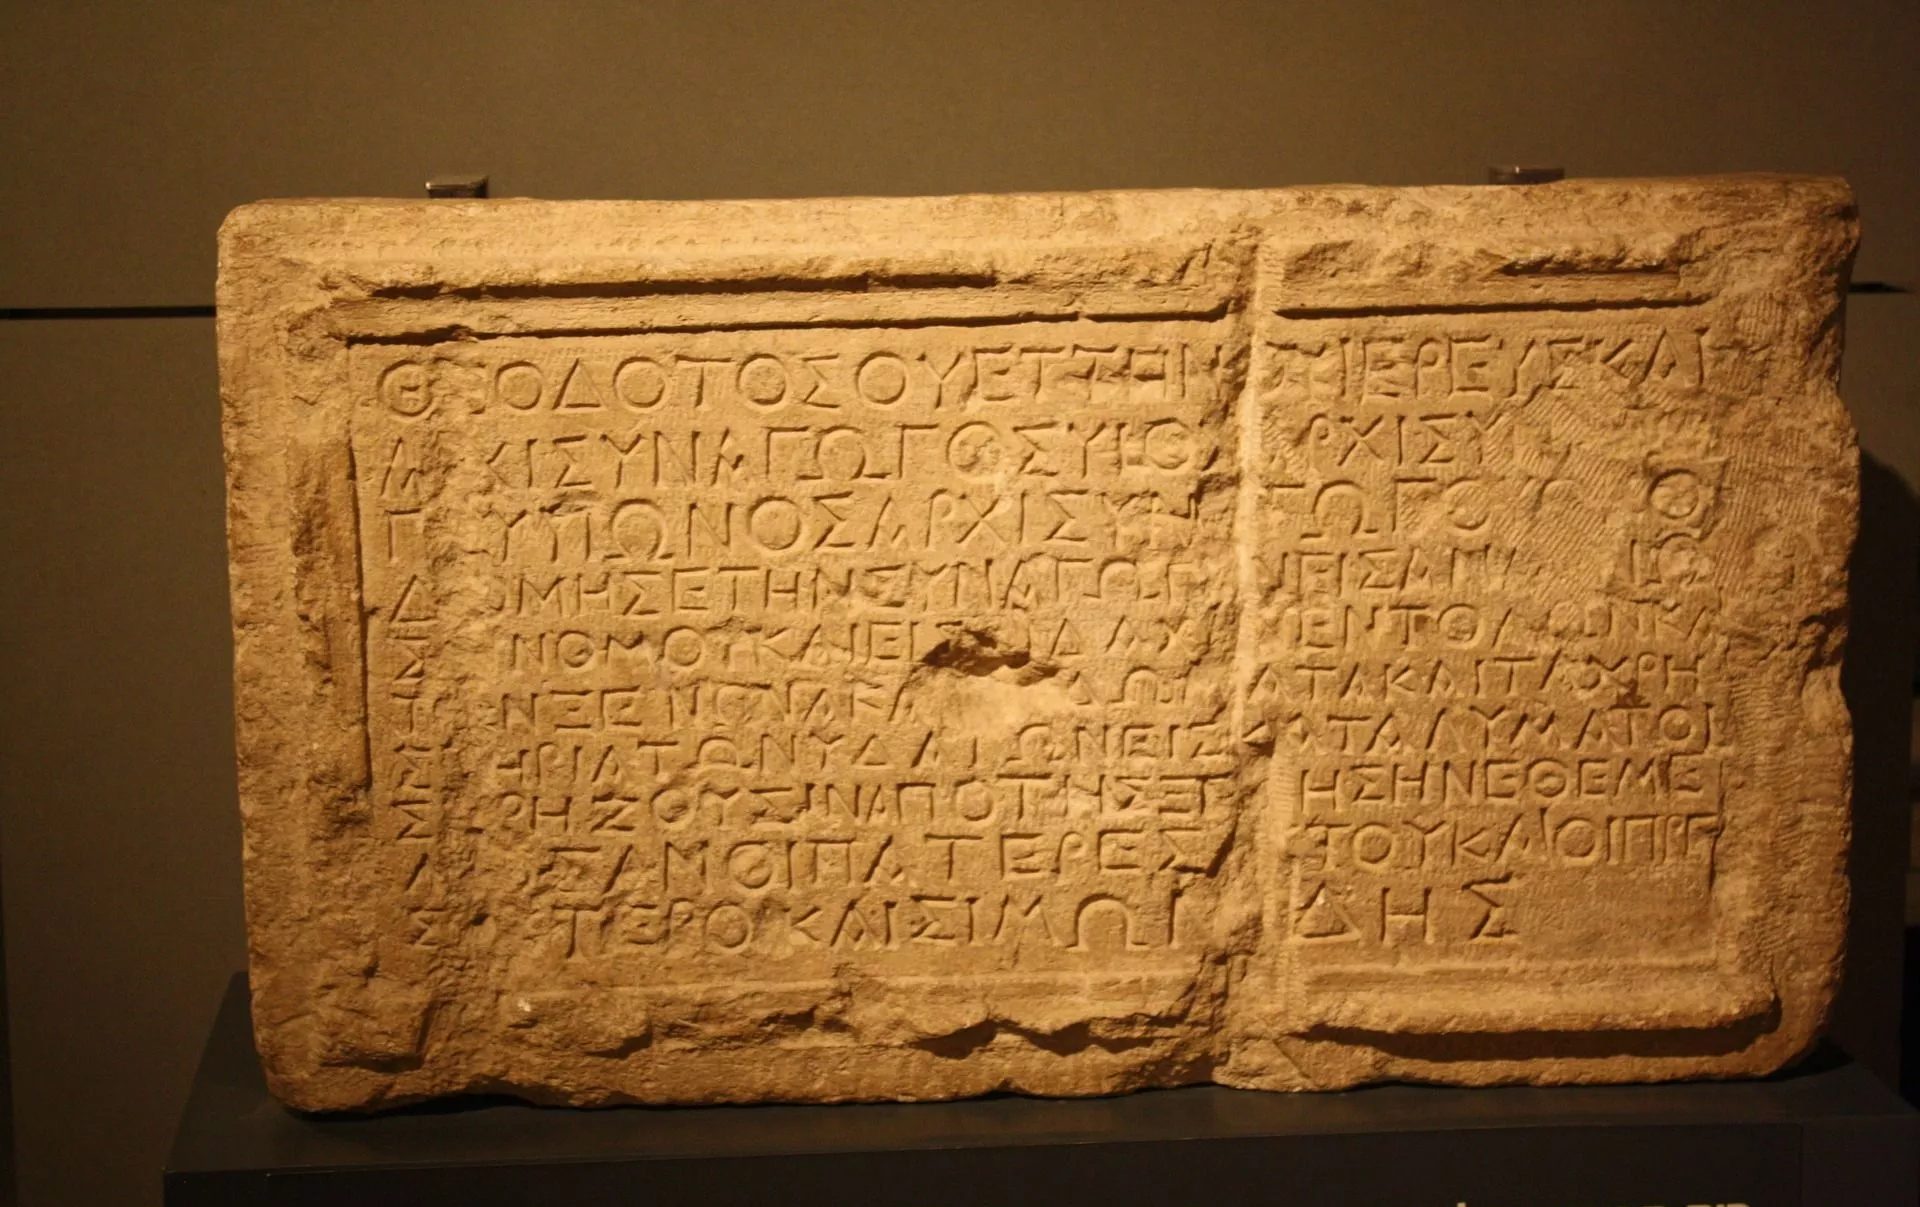 ΘΕΟΔΟΤΟΣΟΥΕΤΤΗΝΟΥΙΕΡΕΥΣΚΑΙ
ΑΡΧΙΣΥΝΑΓΩΓΟΣΥΙΟΣΑΡΧΙΣΥΝ
ΓΟΥΥΙΩΝΟΣΑΡΧΙΣΥΝΑΓΩΓΟΥΩΚΟ
ΔΟΜΗΣΕΤΗΝΣΥΝΑΓΩΓΗΝΕΙΣΑΝΑ ΩΣ
ΙΝΝΟΜΟΥΚΑΙΕΙΣ ΙΔΑΧΗΝΕΝΤΟΛΩΝΚΑΙ
ΤΟΝΞΕΝΩΝΑΚΑ ΔΩΜΑΤΑΚΑΙΤΑΧΡΗ
ΣΤΗΡΙΑΤΩΝΥΔΑΤΩΝΕΙΣΚΑΤΑΛΥΜΑΤΟΙ
ΣΧΡΗΖΟΥΣΙΝΑΠΟΤΗΣΞΕ ΗΣΗΝΕΘΕΜΕ
ΛΙΩΣΑΝΟΙΠΑΤΕΡΕΣ ΤΟΥΚΑΙΟΙΠΡΕ
ΣΒΥΤΕΡΟΙΚΑΙΣΙΜΩΝ ΔΗΣ